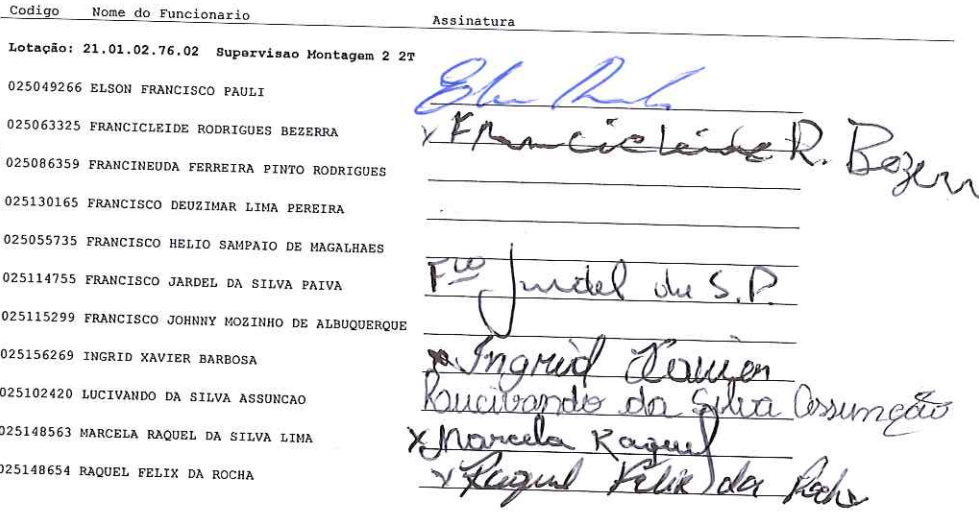 Codigo Nome do Funcionario Assinatura
Lotação: 21.01.02.76.02 Supervisao Montagem 2 2T
025049266 ELSON FRANCISCO PAULI
025063325 FRANCICLEIDE RODRIGUES BEZERRA x Francicleide R. Bezerr
025086359 FRANCINEUDA FERREIRA PINTO RODRIGUES
025130165 FRANCISCO DEUZIMAR LIMA PEREIRA
025055735 FRANCISCO HELIO SAMPAIO DE MAGALHAES
025114755 FRANCISCO JARDEL DA SILVA PAIVA Fco Jardel da S.P.
025115299 FRANCISCO JOHNNY MOZINHO DE ALBUQUERQUE
025156269 INGRID XAVIER BARBOSA x Ingrid Xavier
025102420 LUCIVANDO DA SILVA ASSUNCAO Lucivando da Silva Assunção
025148563 MARCELA RAQUEL DA SILVA LIMA x Marcela Raquel
025148654 RAQUEL FELIX DA ROCHA x Raquel Felix da Rocha